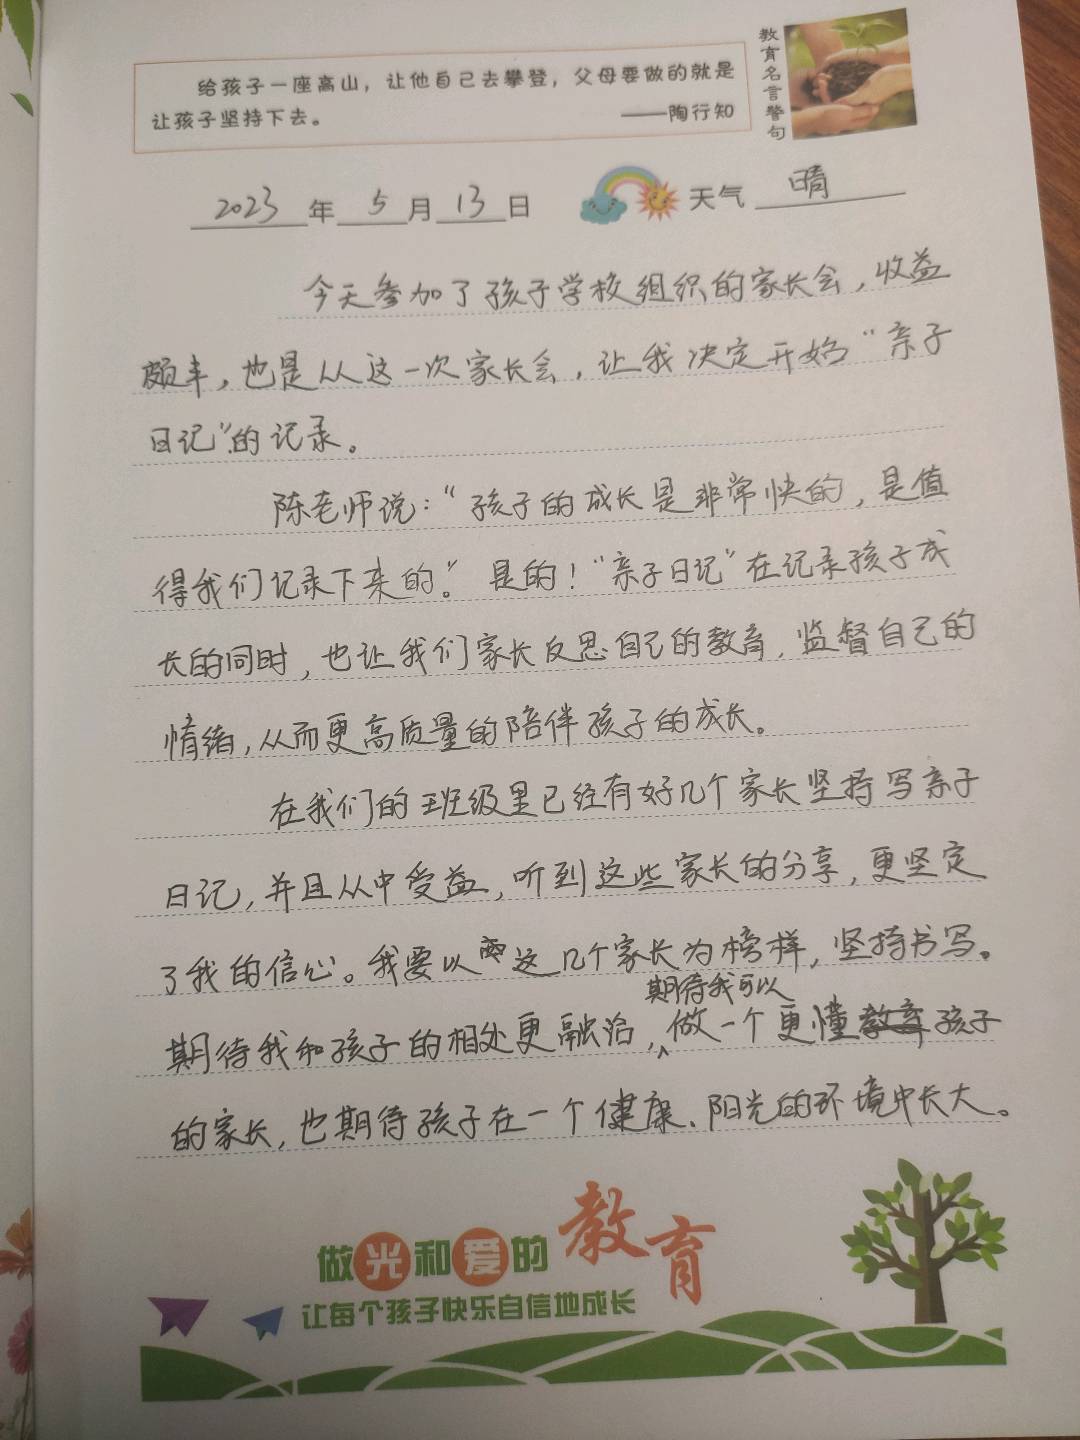 给孩子一座高山，让他自己去攀登，父母要做的就是
让孩子坚持下去。 ——陶行知
教育名言警句
2023年5月13日 天气 晴
今天参加了孩子学校组织的家长会，收益
颇丰，也是从这一次家长会，让我决定开始“亲子
日记”的记录。
陈老师说：“孩子的成长是非常快的，是值
得我们记录下来的。”是的！“亲子日记”在记录孩子成
长的同时，也让我们家长反思自己的教育，监督自己的
情绪，从而更高质量的陪伴孩子的成长。
在我们的班级里已经有好几个家长坚持写亲子
日记，并且从中受益，听到这些家长的分享，更坚定
了我的信心。我要以这几个家长为榜样，坚持书写。
期待我和孩子的相处更融洽，期待我可以做一个更懂教育孩子
的家长，也期待孩子在一个健康、阳光的环境中长大。
做光和爱的教育
让每个孩子快乐自信地成长